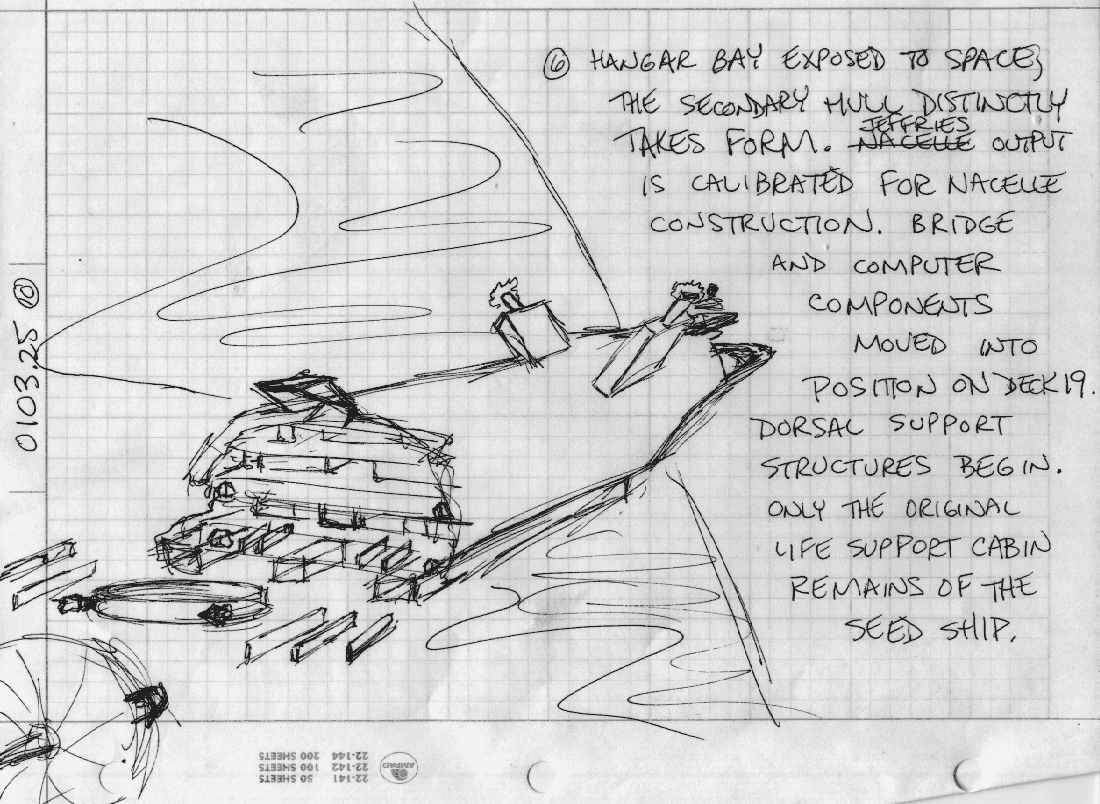 ⑥ HANGAR BAY EXPOSED TO SPACE;
THE SECONDARY HULL DISTINCTLY
JEFFRIES
TAKES FORM. NACELLE OUTPUT
IS CALIBRATED FOR NACELLE
CONSTRUCTION. BRIDGE
AND COMPUTER
COMPONENTS
MOVED INTO
POSITION ON DECK 19.
DORSAL SUPPORT
STRUCTURES BEGIN.
ONLY THE ORIGINAL
LIFE SUPPORT CABIN
REMAINS OF THE
SEED SHIP.
0103.25 ⑩
22-141 50 SHEETS
22-142 100 SHEETS
22-144 200 SHEETS
AMPAD